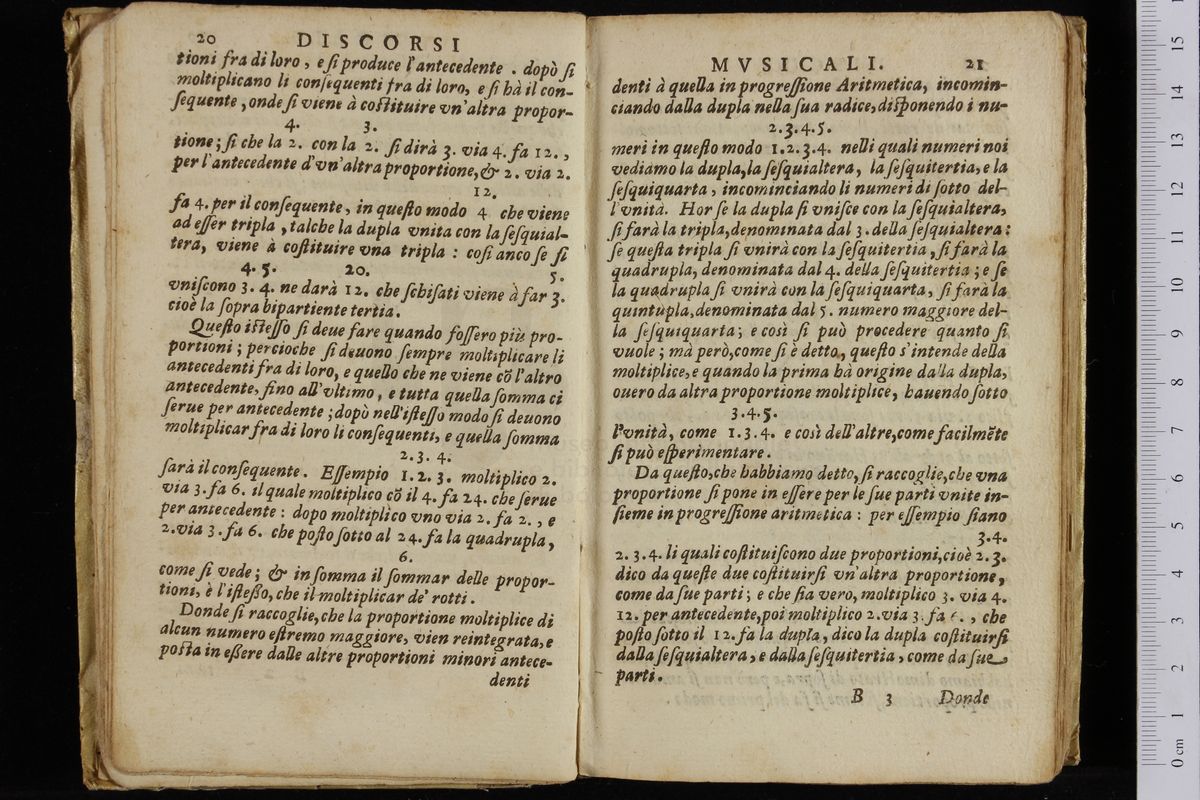 20 DISCORSI
tioni fra di loro, e ſi produce l'antecedente. dopò ſi
moltiplicano li conſequenti fra di loro, e ſi hà il con-
ſequente, onde ſi viene à coſtituire vn'altra propor-
4. 3.
tione; ſi che la 2. con la 2. ſi dirà 3. via 4. fa 12.,
per l'antecedente d'vn'altra proportione, & 2. via 2.
12.
fa 4. per il conſequente, in queſto modo 4 che viene
ad eſſer tripla, talche la dupla vnita con la ſeſquial-
tera, viene à coſtituire vna tripla: coſi anco ſe ſi
4. 5. 20. 5.
vniſcono 3. 4. ne darà 12. che ſchiſati viene à far 3.
cioè la ſopra bipartiente tertia.
Queſto iſteſſo ſi deue fare quando foſſero più pro-
portioni; percioche ſi deuono ſempre moltiplicare li
antecedenti fra di loro, e quello che ne viene cõ l'altro
antecedente, fino all'vltimo, e tutta quella ſomma ci
ſerue per antecedente; dopò nell'iſteſſo modo ſi deuono
moltiplicar fra di loro li conſequenti, e quella ſomma
2. 3. 4.
ſarà il conſequente. Eſſempio 1. 2. 3. moltiplico 2.
via 3. fa 6. il quale moltiplico cõ il 4. fa 24. che ſerue
per antecedente: dopo moltiplico vno via 2. fa 2., e
2. via 3. fa 6. che poſto ſotto al 24. fa la quadrupla,
6.
come ſi vede; & in ſomma il ſommar delle propor-
tioni, è l'iſteßo, che il moltiplicar de' rotti.
Donde ſi raccoglie, che la proportione moltiplice di
alcun numero eſtremo maggiore, vien reintegrata, e
poſta in eßere dalle altre proportioni minori antece-
denti
MVSICALI. 21
denti à quella in progreſſione Aritmetica, incomin-
ciando dalla dupla nella ſua radice, diſponendo i nu-
2. 3. 4. 5.
meri in queſto modo 1. 2. 3. 4. nelli quali numeri noi
vediamo la dupla, la ſeſquialtera, la ſeſquitertia, e la
ſeſquiquarta, incominciando li numeri di ſotto del-
l'vnità. Hor ſe la dupla ſi vniſce con la ſeſquialtera,
ſi farà la tripla, denominata dal 3. della ſeſquialtera:
ſe queſta tripla ſi vnirà con la ſeſquitertia, ſi farà la
quadrupla, denominata dal 4. della ſeſquitertia; e ſe
la quadrupla ſi vnirà con la ſeſquiquarta, ſi farà la
quintupla, denominata dal 5. numero maggiore del-
la ſeſquiquarta; e così ſi può procedere quanto ſi
vuole; mà però, come ſi è detto, queſto s'intende della
moltiplice, e quando la prima hà origine dalla dupla,
ouero da altra proportione moltiplice, hauendo ſotto
3. 4. 5.
l'vnità, come 1. 3. 4. e così dell'altre, come facilmẽte
ſi può eſperimentare.
Da queſto, che habbiamo detto, ſi raccoglie, che vna
proportione ſi pone in eſſere per le ſue parti vnite in-
ſieme in progreſſione aritmetica: per eſſempio ſiano
3. 4.
2. 3. 4. li quali coſtituiſcono due proportioni, cioè 2. 3.
dico da queſte due coſtituirſi vn'altra proportione,
come da ſue parti; e che ſia vero, moltiplico 3. via 4.
12. per antecedente, poi moltiplico 2. via 3. fa 6., che
poſto ſotto il 12. fa la dupla, dico la dupla coſtituirſi
dalla ſeſquialtera, e dalla ſeſquitertia, come da ſue
parti.
B 3 Donde
15
14
13
12
11
10
9
8
7
6
5
4
3
2
1
0 cm